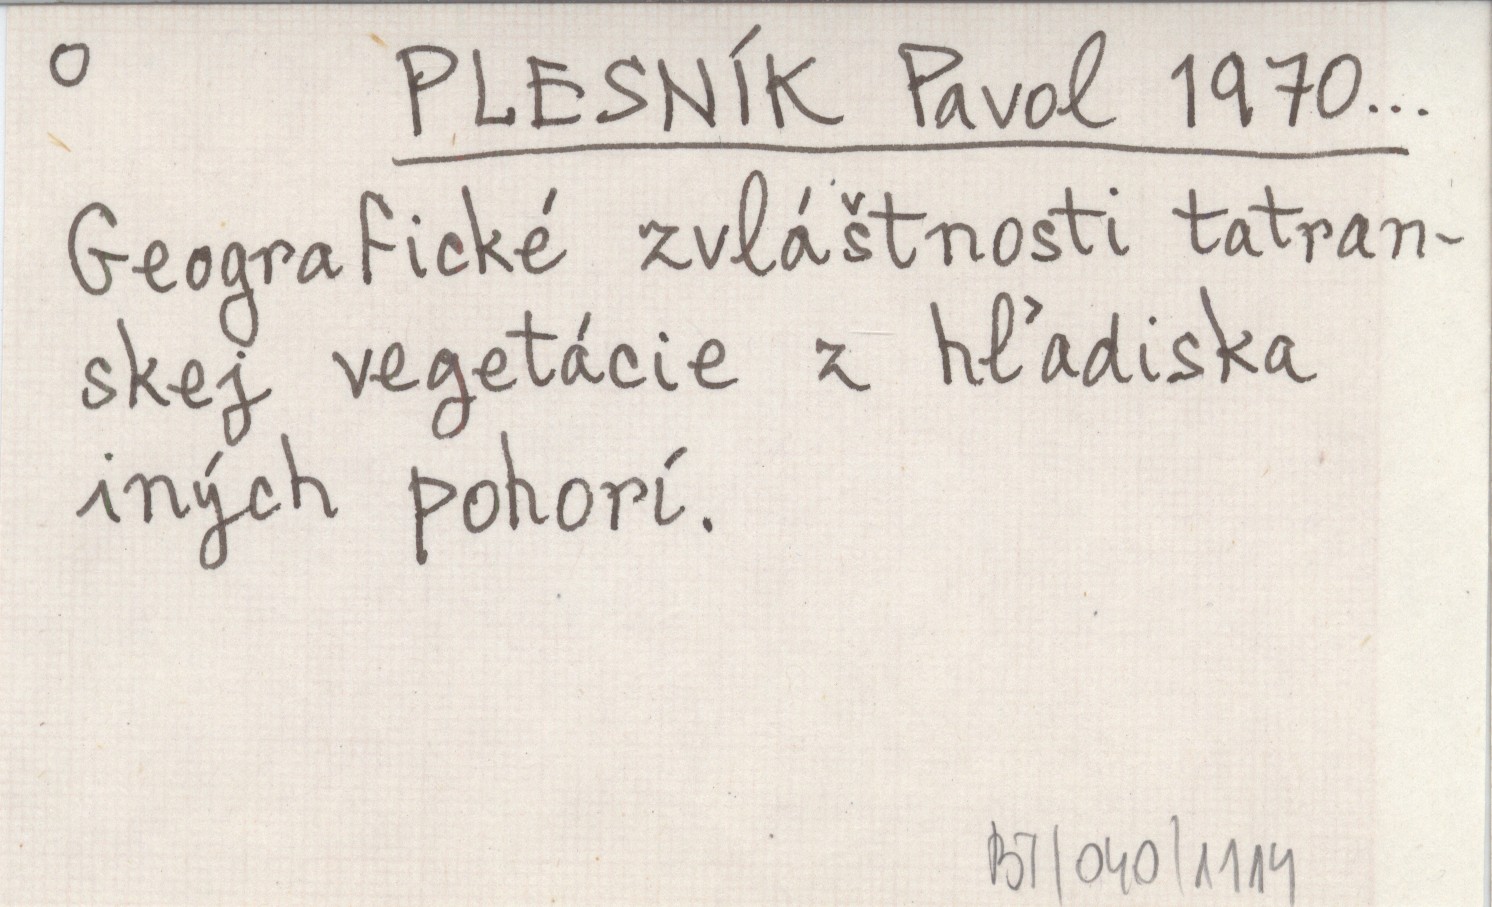 O PLESNÍK Pavol 1970...
Geografické zvláštnosti tatran-
skej vegetácie z hľadiska
iných pohorí.
BT/040/1114